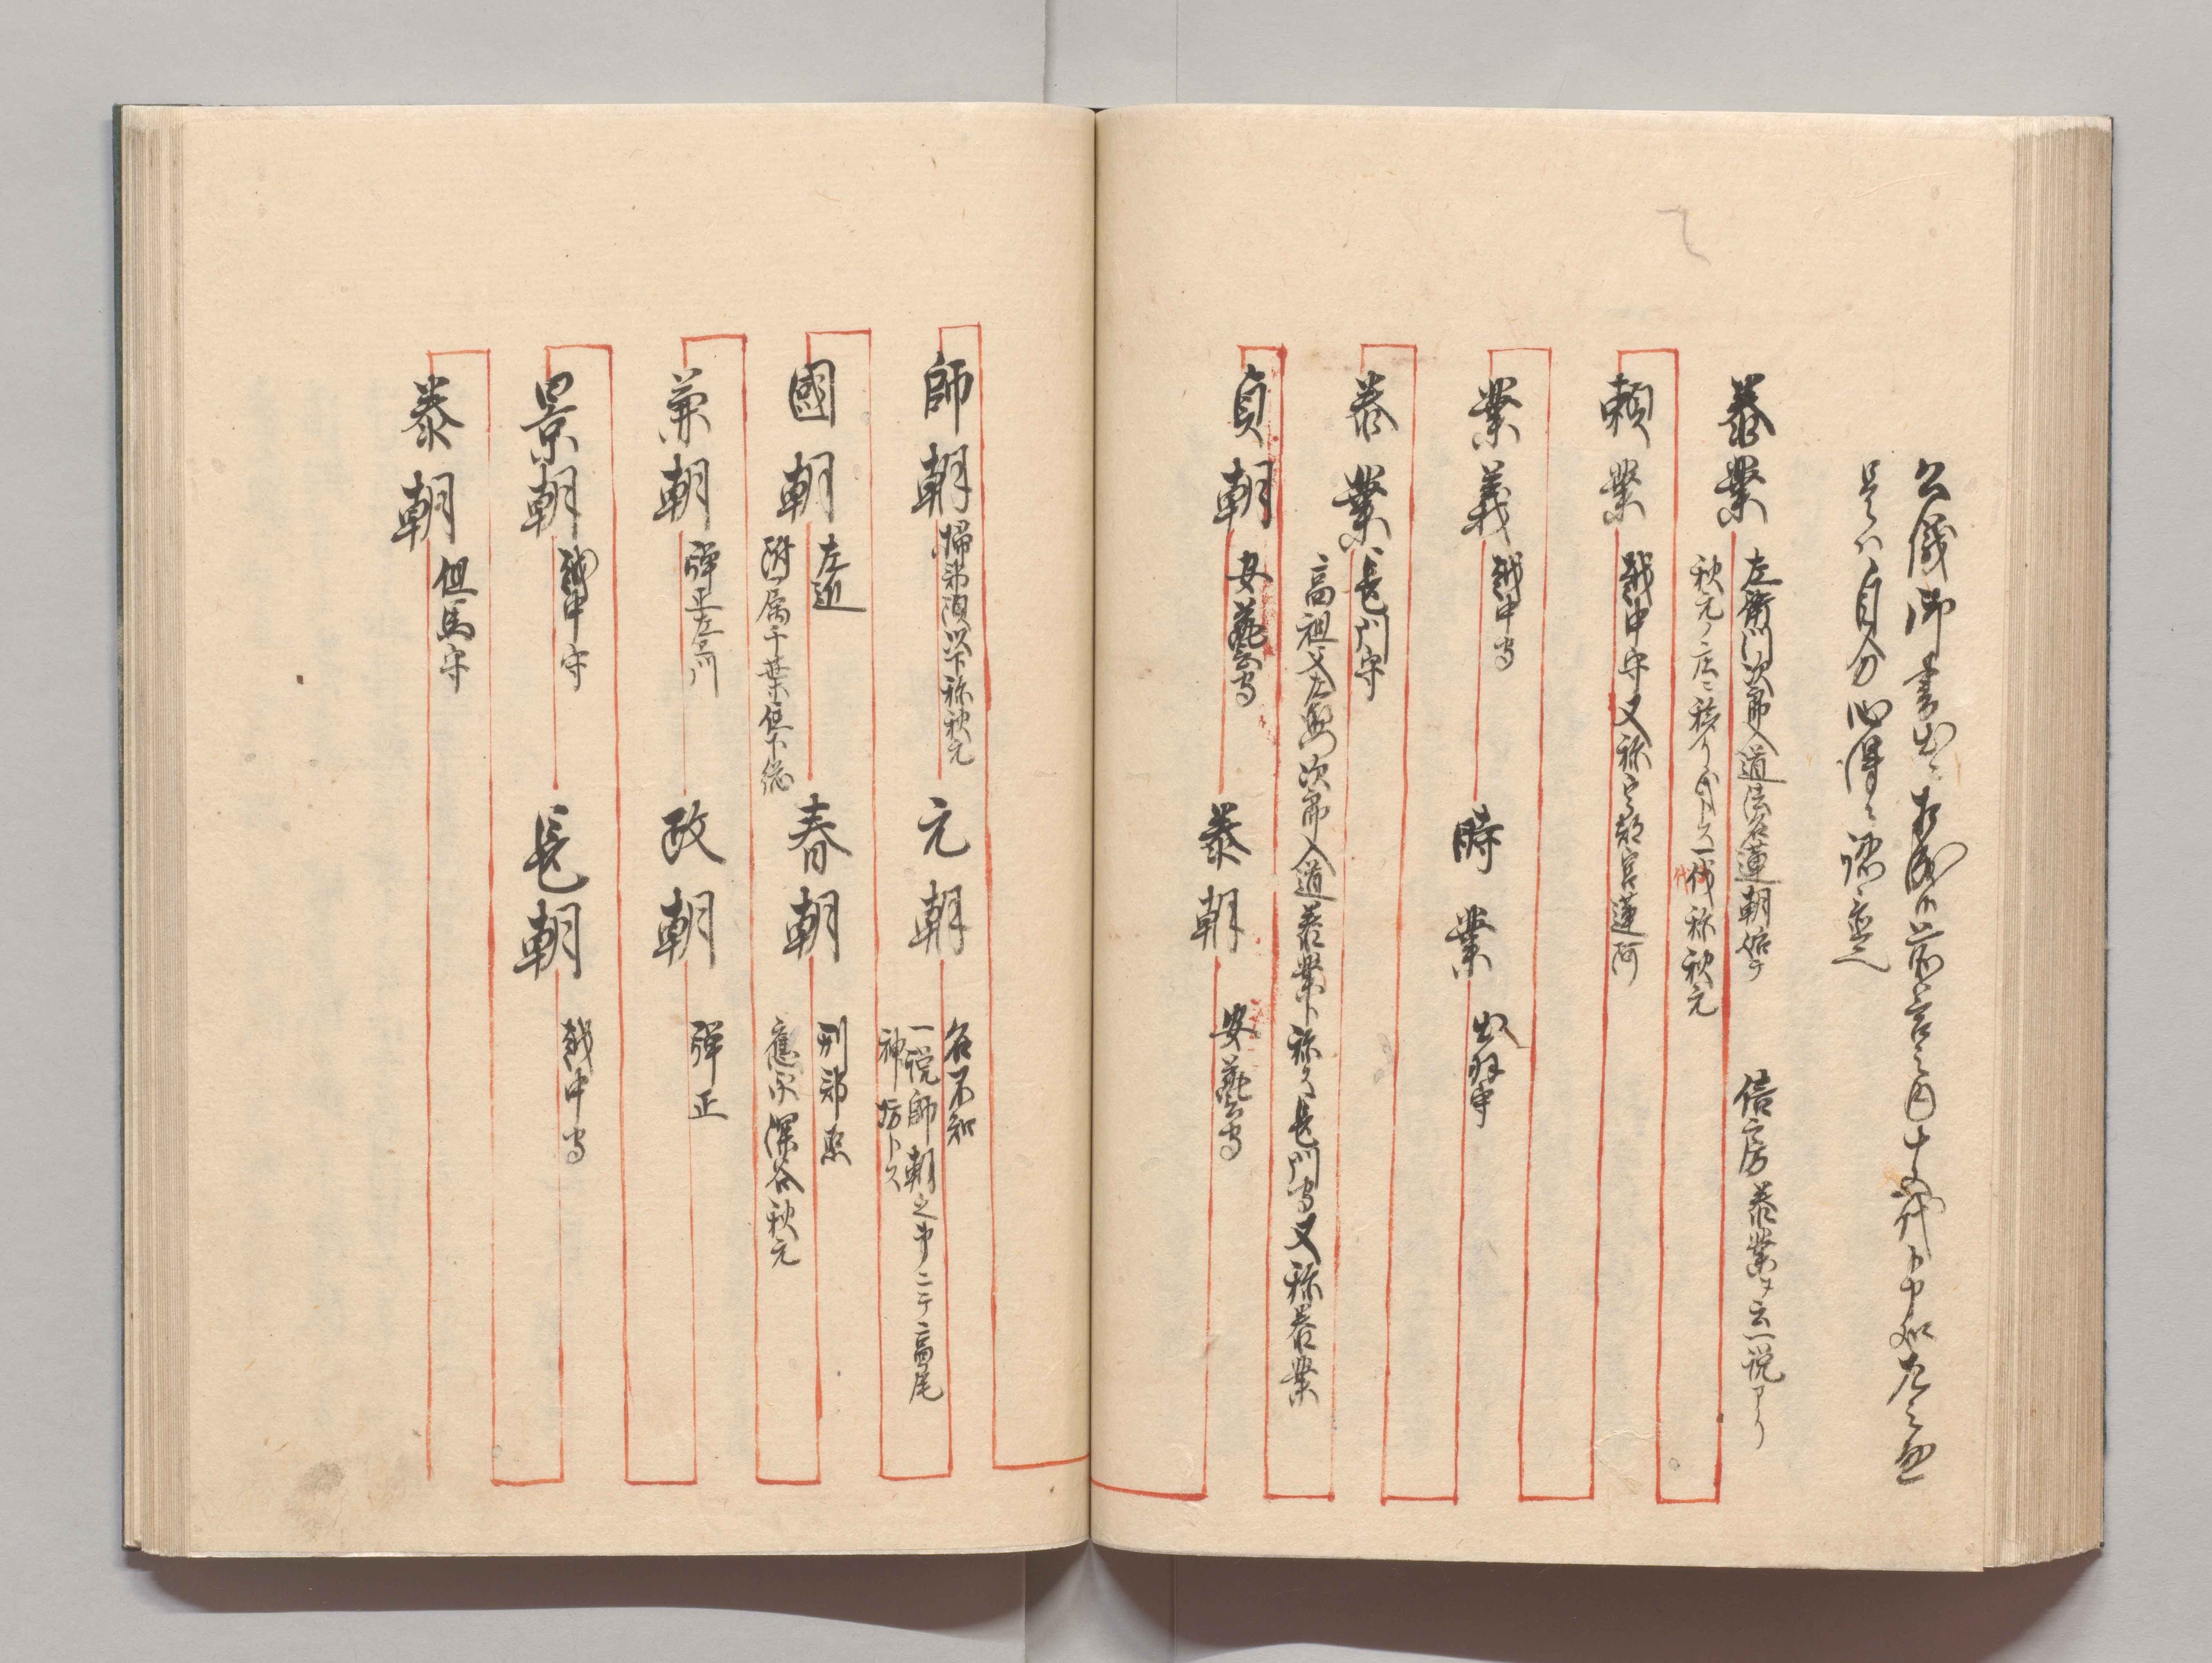 公儀御書出ニ相成候前書之内十五代ト申処左之通
是ハ自分心得ニ認置
泰業
左衛門次郎入道法名蓮朝始テ
秋元ノ庄ニ移り
一代称秋元
信房泰業ヲ云一説アリ
頼業
越中守又称宇都宮蓮阿
業義
越中守
時業
出羽守
泰業
長門守
高祖父左衛門次郎入道泰業ト称ス長門守又称泰業
貞朝
安藝守
泰朝
安藝守
師朝
以下称秋元
元朝
名不知
一説師朝之弟ニテ高尾
神坊トス
國朝
左近
附属千葉住下総
春朝
刑部烝
應永深谷秋元
兼朝
弾正左衛門
政朝
弾正
景朝
越中守
長朝
越中守
泰朝
但馬守